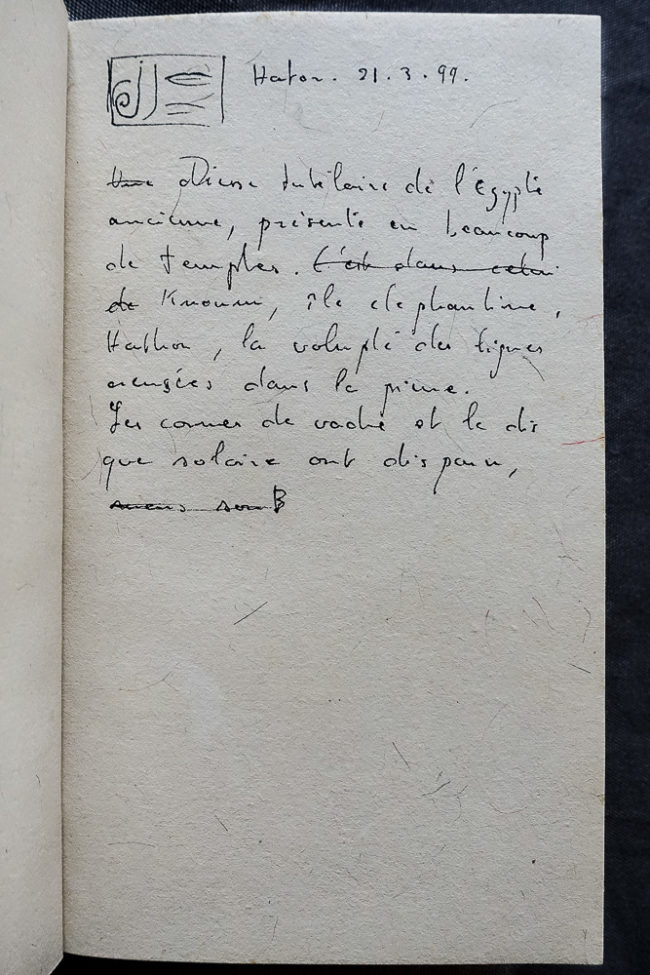 Hator. 21.3.99.
Une Diesse tutélaire de l'Egypte
ancienne, présente en beaucoup
de temples. C'est dans celui
de Knoum, île elephantine,
Hathor, la volupté des lignes
creusées dans la pierre.
Les cornes de vache et le dis
que solaire ont disparu,